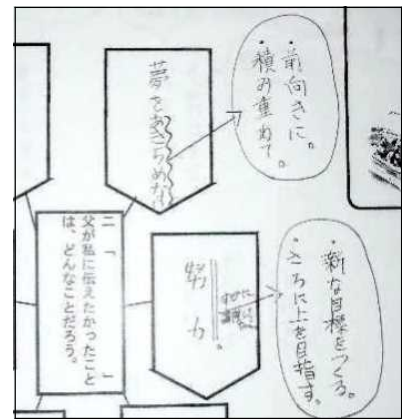 ・前向きに。
・積み重ねて。
夢をあきらめない
・新な目標をつくる。
・さらに上を目指す。
努力。
二 「　　　　」
父が私に伝えたかったこと
は、どんなことだろう。